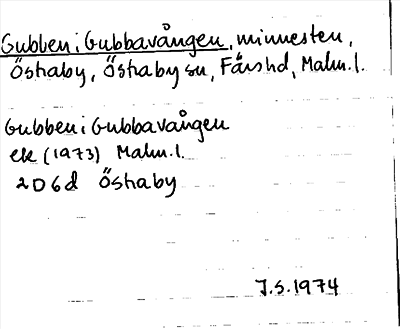 Gubben i Gubbavången, minnesten,
Östraby, Östraby sn, Färshd, Malm.l.
Gubben i Gubbavången
ek (1973) Malm.l.
2D6d Östraby
J.S.1974